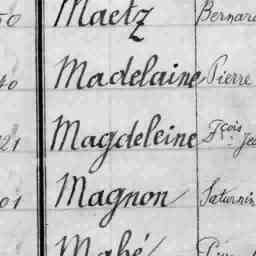 50 Maetz Bernard
40 Madelaine Pierre
121 Magdeleine Fçois Jea
01 Magnon Saturnin
Mahé